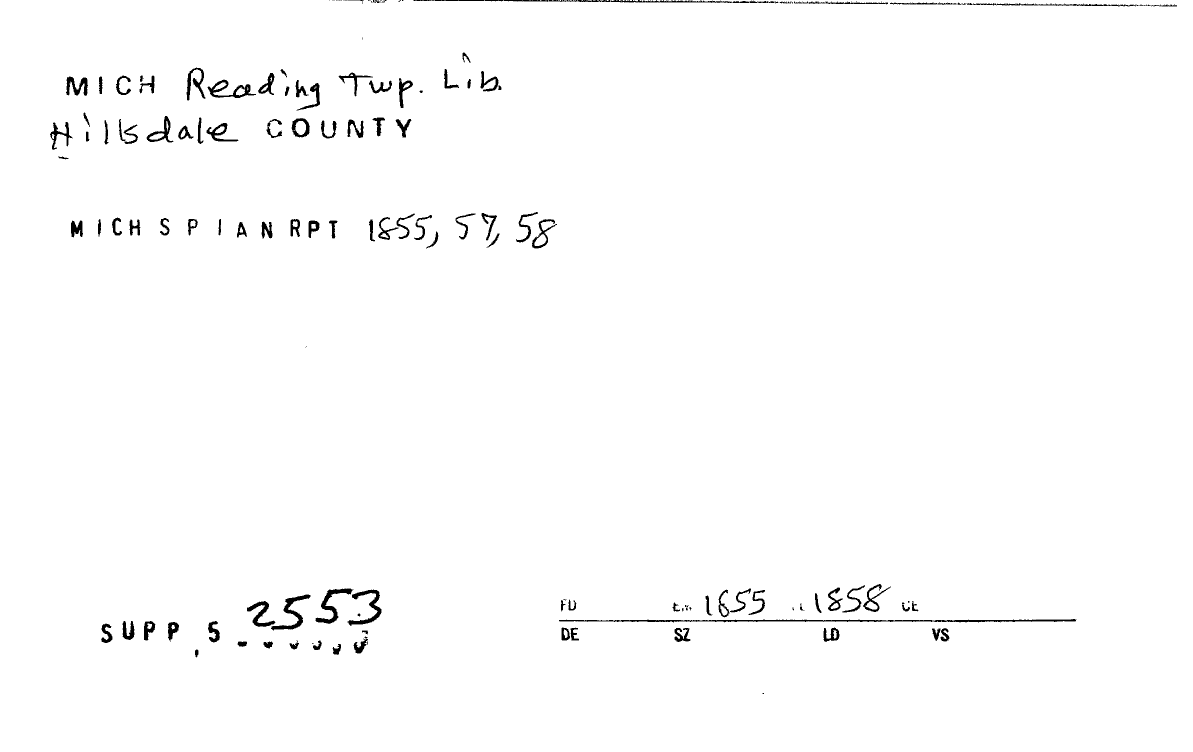 MICH Reading Twp. Lib.
Hillsdale COUNTY
MICH S P I A N RPT 1855, 57, 58
SUPP. 5 2553
FD 1855 1858 CE
DE SZ LD VS